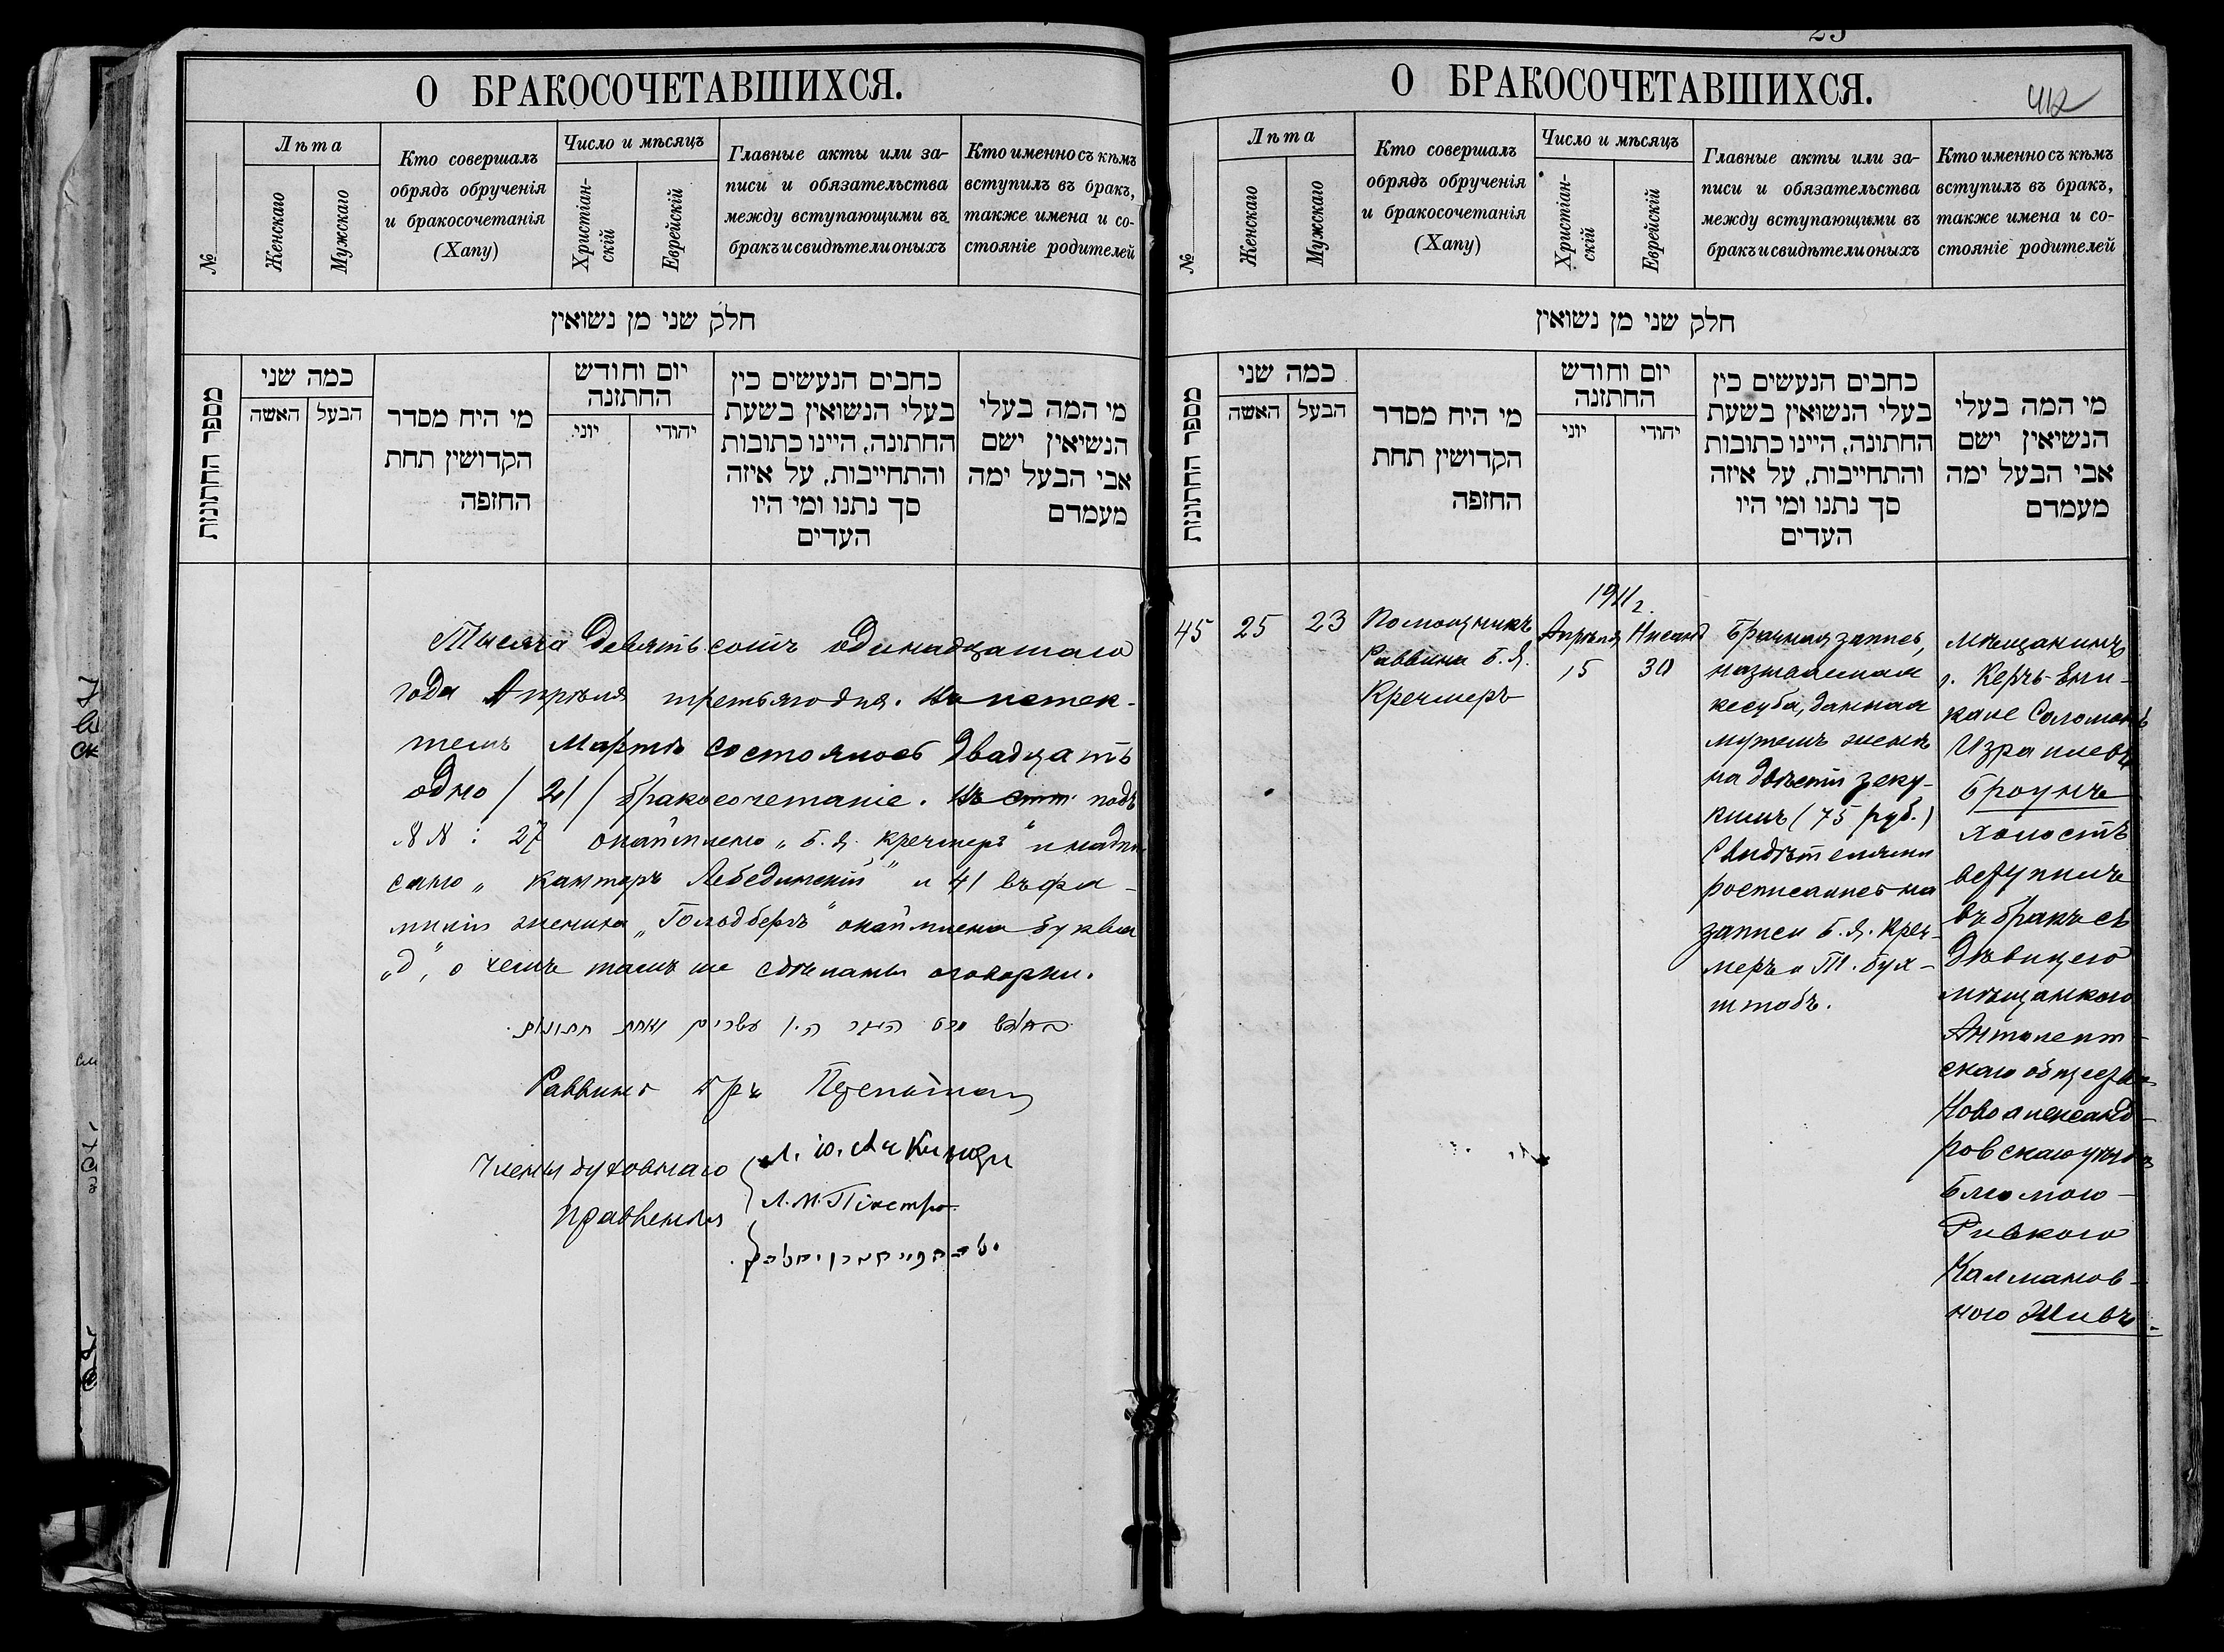 О БРАКОСОЧЕТАВШИХСЯ.
№
Лѣта
Женскаго
Мужскаго
Кто совершалъ
обрядъ обрученія
и бракосочетанія
(Хапу)
Число и мѣсяцъ
Христіан-
скій
Еврейскій
Главные акты или за-
писи и обязательства
между вступающими въ
бракъ и свидѣтели оныхъ
Кто именно съ кѣмъ
вступилъ въ бракъ,
также имена и со-
стояніе родителей
חלק שני מן נשואין
מספר החתונות
כמה שני
האשה
הבעל
מי היח מסדר
הקדושין תחת
החזפה
יום וחודש
החתזנה
יוני
יהודי
כחבים הנעשים כין
בעלי הנשואין בשעת
החתונה, היינו כתובות
והתחייבות, על איזה
סך נתנו ומי היו
העדים
מי המה בעלי
הנשיאין ישם
אבי הבעל ימה
מעמדם
Тысяча девятьсотъ одинадцатаго
года Апрѣля третьяго дня. Въ истек-
темъ Мартѣ состоялось двадцать
одно / 21 / бракосочетаніе. подъ
№ № : 27 окаймлено „Б. Я. Кречмеръ" и надпи
сано „Канторъ Лебединскій" и 41 въ фа-
миліи жениха „Гольдбергъ" окаймлена буква
„д", о чемъ тамъ же сдѣланы оговорки.
עשרים ואחת חתונות
Раввинъ
Члены духовнаго
правленія
О БРАКОСОЧЕТАВШИХСЯ.
412
№
Лѣта
Женскаго
Мужскаго
Кто совершалъ
обрядъ обрученія
и бракосочетанія
(Хапу)
Число и мѣсяцъ
Христіан-
скій
Еврейскій
Главные акты или за-
писи и обязательства
между вступающими въ
бракъ и свидѣтели оныхъ
Кто именно съ кѣмъ
вступилъ въ бракъ,
также имена и со-
стояніе родителей
חלק שני מן נשואין
מספר החתונות
כמה שני
האשה
הבעל
מי היח מסדר
הקדושין תחת
החזפה
יום וחודש
החתזנה
יוני
יהודי
כחבים הנעשים כין
בעלי הנשואין בשעת
החתונה, היינו כתובות
והתחייבות, על איזה
סך נתנו ומי היו
העדים
מי המה בעלי
הנשיאין ישם
אבי הבעל ימה
מעמדם
45
25
23
Помощникъ
Раввина Б. Я.
Кречмеръ
1911 г.
Апрѣля
15
Нисанъ
30
Брачная запись,
называемая
кесуба, данная
мужемъ женѣ
на двѣсти зеку-
кимъ (75 руб.)
Свидѣтелями
росписались на
записи Б. Я. Креч-
меръ и М. Бух-
штабъ.
Мѣщанинъ
г. Керчь-Ени-
кале Соломонъ
Израилевъ
Броунъ
холостъ
вступилъ
въ бракъ съ
дѣвицею
мѣщанкою
Антолепт-
скаго общества
Новоалександ-
ровскаго уѣзда
Блюмою-
Ривкою
Калманов-
ною Шивъ.